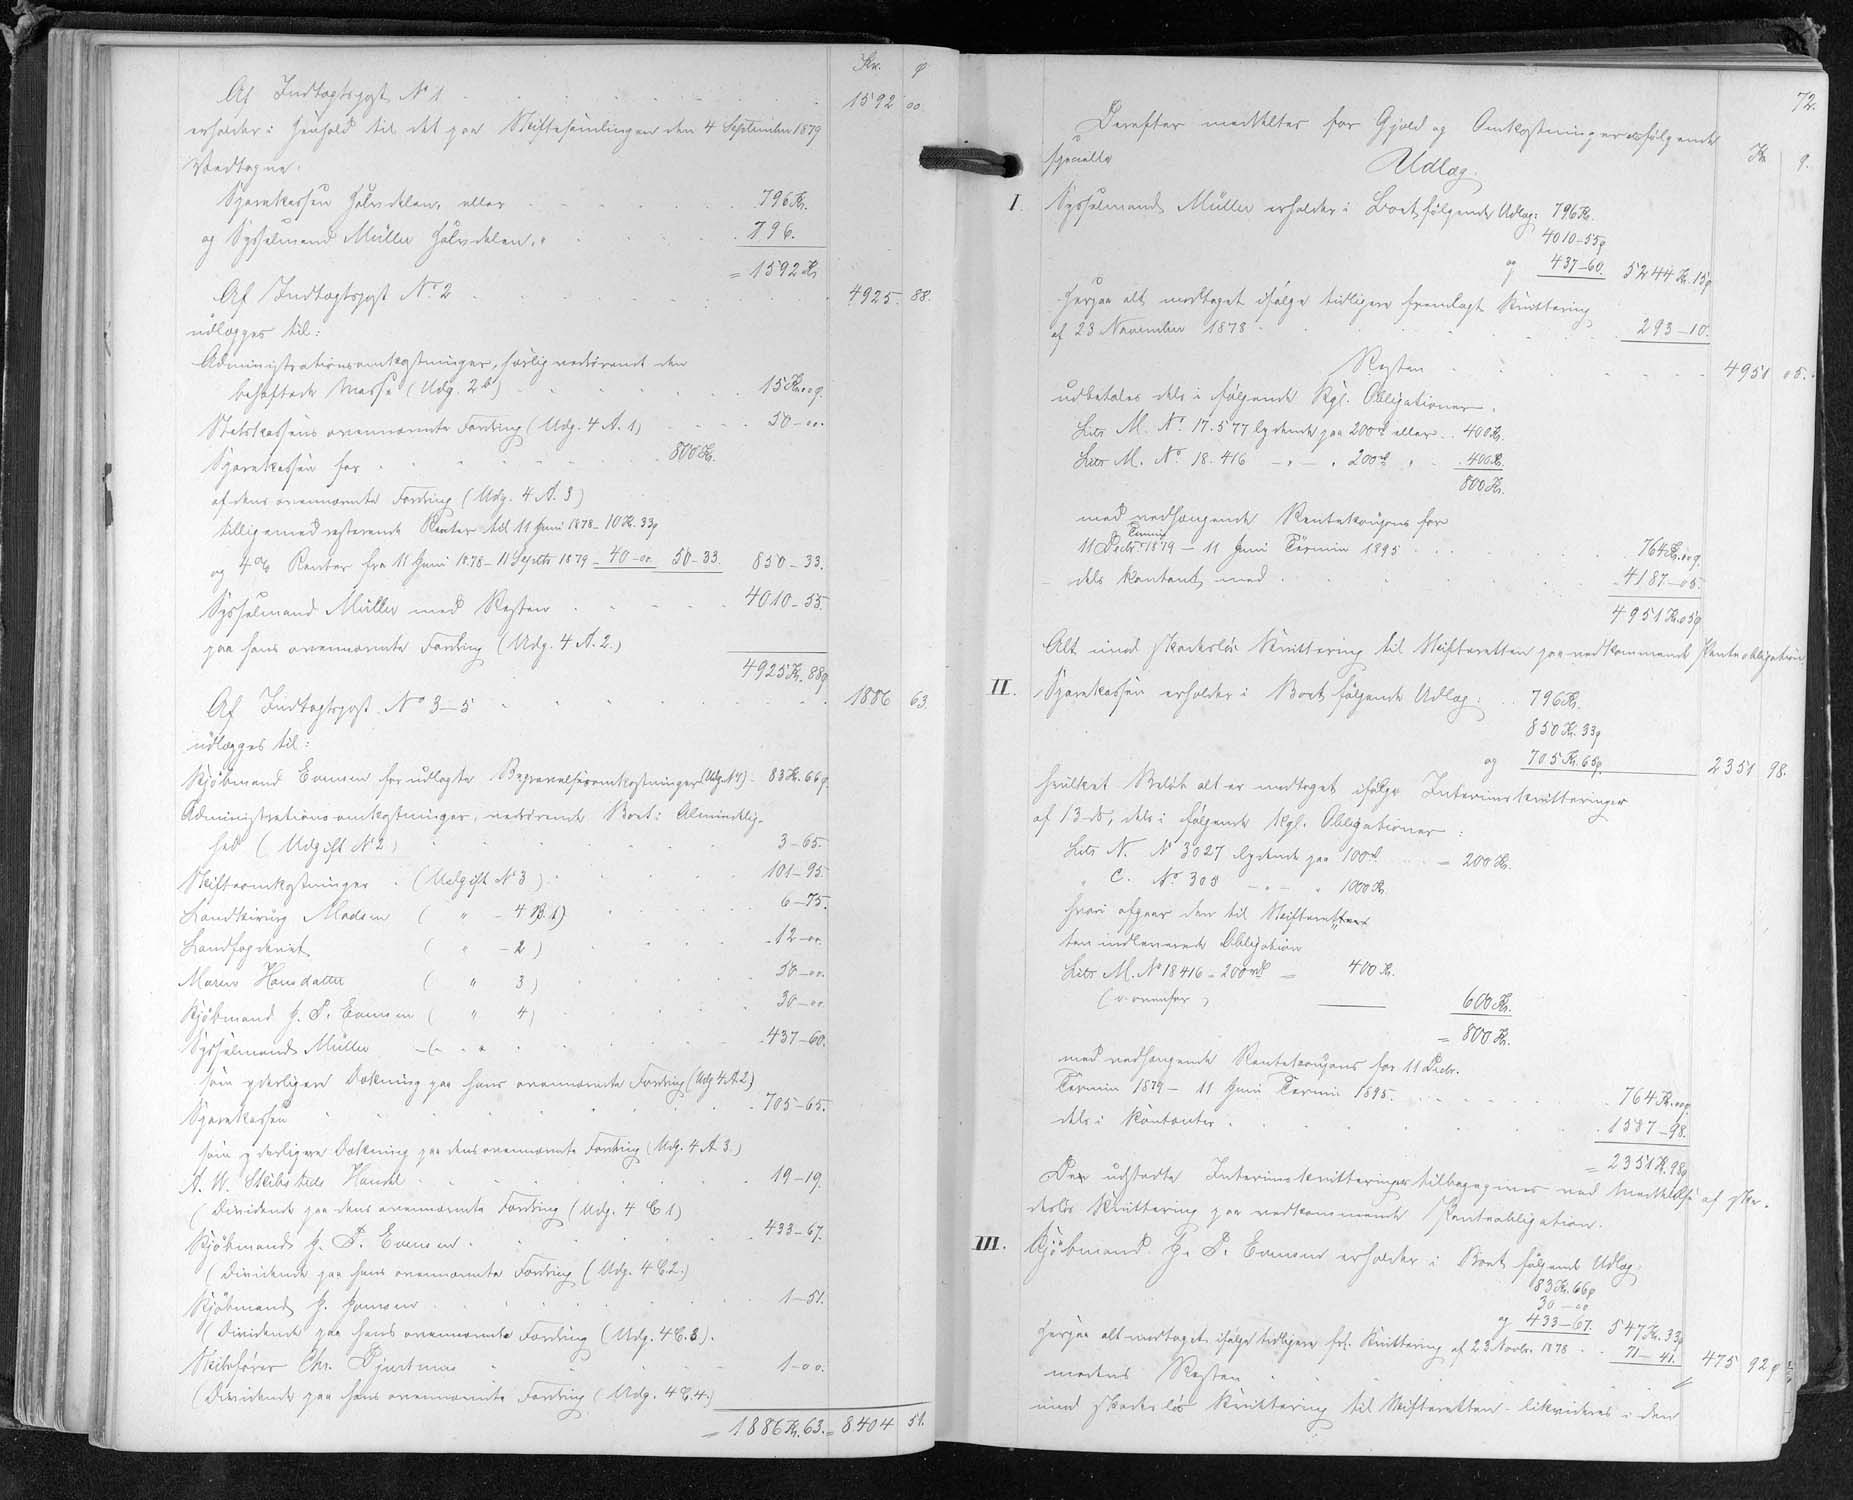 Kr. ø
Af Indtægtspost No 1 1592 00
erholder i Henhold til det paa Skiftesamlingen den 4 September 1879
Vedtagne:
Sparekassen Halvdelen, eller 796 Kr.
og Sysselmand Müller Halvdelen, " 796.
= 1592 Kr
Af Indtægtspost No. 2 4925. 88.
udlægges til:
Administrationsomkostninger, særlig vedrørende den
behæftede Masse (Udg. 2b) 15 Kr. 00 ø.
Statskassens ovennævnte Fordring (Udg. 4 A. 1) 50-00.
Sparekassen for 800 Kr.
af dens ovennævnte Fordring (Udg. 4 A. 3)
tilligemed resterende Renter til 11 Juni 1878 - 10 Kr. 33 ø
og 4% Renter fra 11 Juni 1878 - 11 Septbr 1879 - 40-00. 50-33. 850-33.
Sysselmand Müller med Resten 4010-55.
paa hans ovennævnte Fordring (Udg. 4 A. 2.)
4925 Kr. 88 ø
Af Indtægtspost No 3-5 1886 63.
udlægges til:
Kjøbmand Evensen for udlagte Begravelsesomkostninger (Udg. No 1) 83 Kr. 66 ø.
Administrationsomkostninger, vedrørende Boet i Almindelig-
hed (Udgift No 2) 3-65.
Skifteomkostninger (Udgift No 3) 101-95.
Landkirurg Madsen ( " - 4 B. 1) 6-75.
Landfogderiet ( " - 2) 12-00.
Maren Hansdatter ( " 3) 50-00.
Kjøbmand J. P. Evensen ( " 4) 30-00.
Sysselmand Müller 437-60.
som yderligere Dækning paa hans ovennævnte Fordring (Udg 4 A 2.)
Sparekassen 705-65.
som yderligere Dækning paa dens ovennævnte Fordring (Udg. 4 A 3.)
A. W. Skibsteds Handel 19-19.
(Dividende paa dens ovennævnte Fordring (Udg. 4 C 1)
Kjøbmand J. P. Evensen 433-67.
(Dividende paa hans ovennævnte Fordring (Udg. 4 C. 2.)
Kjøbmand J. 1-51.
(Dividende paa hans ovennævnte Fordring (Udg. 4 C. 3).
Chr. 1-00.
(Dividende paa hans ovennævnte Fordring (Udg. 4 C. 4.)
= 1886 Kr. 63. = 8404 51.
72.
Derefter meddeltes for Gjæld og Omkostninger følgende
specielle Kr ø.
Udlæg.
I. Sysselmand Müller erholder i Boet følgende Udlæg: 796 Kr.
4010-55 ø
og 437-60. 5244 Kr. 15 ø
Herpaa alt modtaget ifølge tidligere fremlagt Kvittering
af 23 November 1878 293-10.
Resten 4951 05.
udbetales dels i følgende Kgl. Obligationer:
Litr M. No. 17.577 lydende paa 200 rd eller 400 Kr.
Litr M. No. 18.416 - " - " 200 rd " 400 Kr.
800 Kr.
med vedhængende Rentekoupons for
11 Decbr. Termin 1879 - 11 Juni Termin 1895 764 Kr. 00 ø.
- dels kontant med 4187-05.
4951 Kr. 05 ø
Alt imod skadesløs Kvittering til Skifteretten paa vedkommende Panteobligation.
II. Sparekassen erholder i Boet følgende Udlæg: 796 Kr.
850 Kr. 33 ø
og 705 Kr. 65 ø. 2351 98.
hvilket Beløb alt er modtaget ifølge Interimskvitteringer
af 13 ds, dels i følgende Kgl. Obligationer:
Litr N. No 3027 lydende paa 100 rd = 200 Kr.
" C. No. 305 - " - " 1000 Kr.
hvori afgaar den til Skifteret
ten indleverede Obligation
Litr M. No 18416 - 200 rd = 400 Kr.
(v. ovenfor) 600 Kr.
= 800 Kr.
med vedhængende Rentekoupons for 11 Decbr.
Termin 1879 - 11 Juni Termin 1895. 764 Kr. 00
dels i Kontanter 1587-98.
= 2351 Kr. 98 ø
De udstedte Interimskvitteringer tilbagegives ved Meddelelse af ska-
desløs Kvittering paa vedkommende Panteobligation.
III. Kjøbmand J. P. Evensen erholder i Boet følgende Udlæg:
83 Kr. 66 ø
30-00
og 433-67. 547 Kr. 33 ø
Herpaa alt modtaget ifølge tidligere frl. Kvittering af 23 Novbr. 1878 71-41.
medens Resten 475 92 ø
imod skadesløs Kvittering til Skifteretten likvideres i den